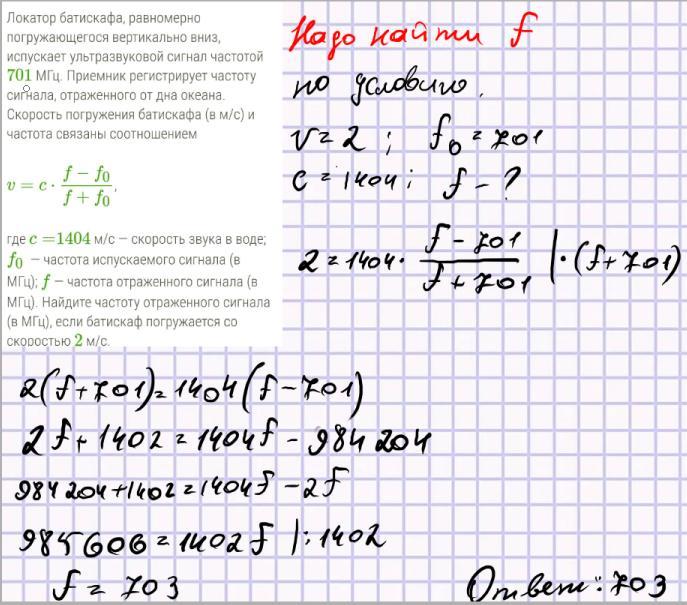 Локатор батискафа, равномерно
погружающегося вертикально вниз,
испускает ультразвуковой сигнал частотой
701 МГц. Приемник регистрирует частоту
сигнала, отраженного от дна океана.
Скорость погружения батискафа (в м/с) и
частота связаны соотношением
v = c · (f − f₀)/(f + f₀),
где c =1404 м/с – скорость звука в воде;
f₀ – частота испускаемого сигнала (в
МГц); f – частота отраженного сигнала (в
МГц). Найдите частоту отраженного сигнала
(в МГц), если батискаф погружается со
скоростью 2 м/с.
Надо найти f
по условию.
v=2 ; f₀=701
c=1404; f – ?
2=1404· (f−701)/(f+701) |·(f+701)
2(f+701)=1404(f−701)
2f+1402=1404f−984204
984204+1402=1404f−2f
985606=1402f |:1402
f=703
Ответ: 703